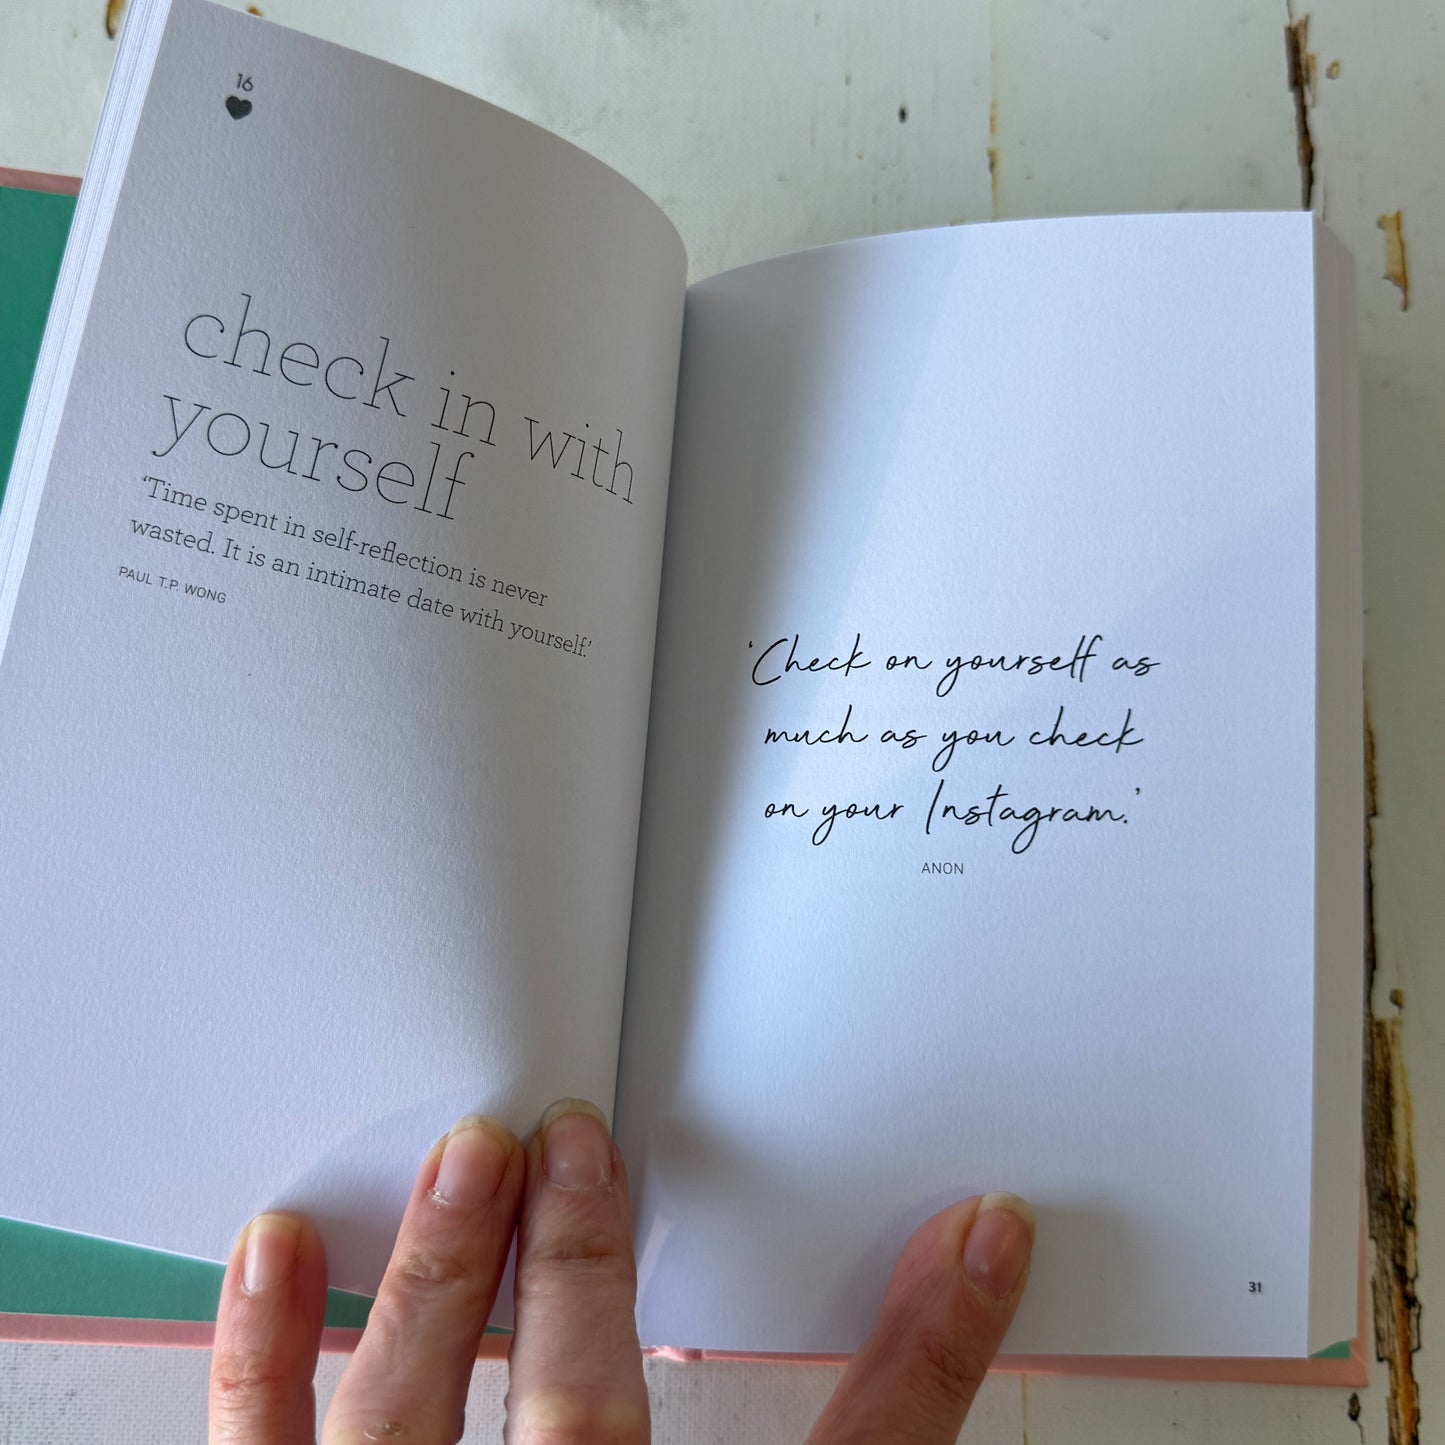 16
check in with
yourself
‘Time spent in self-reflection is never
wasted. It is an intimate date with yourself.’
PAUL T.P. WONG
‘Check on yourself as
much as you check
on your Instagram.’
ANON
31